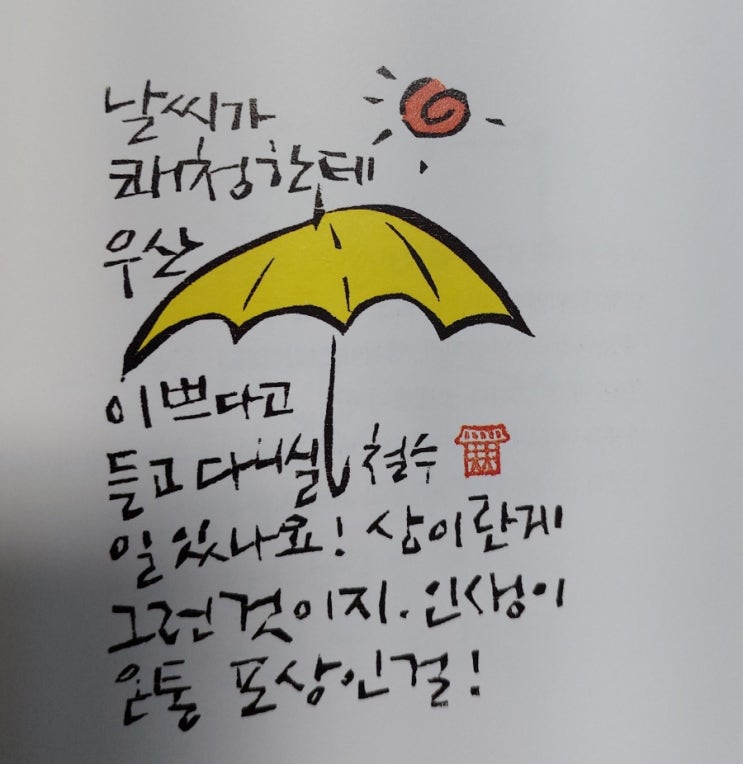 날씨가
쾌청한데
우산
이쁘다고
들고 다니실
일 있나요! 상이란게
그런 것이지. 인생이
온통 포상인걸!
철수